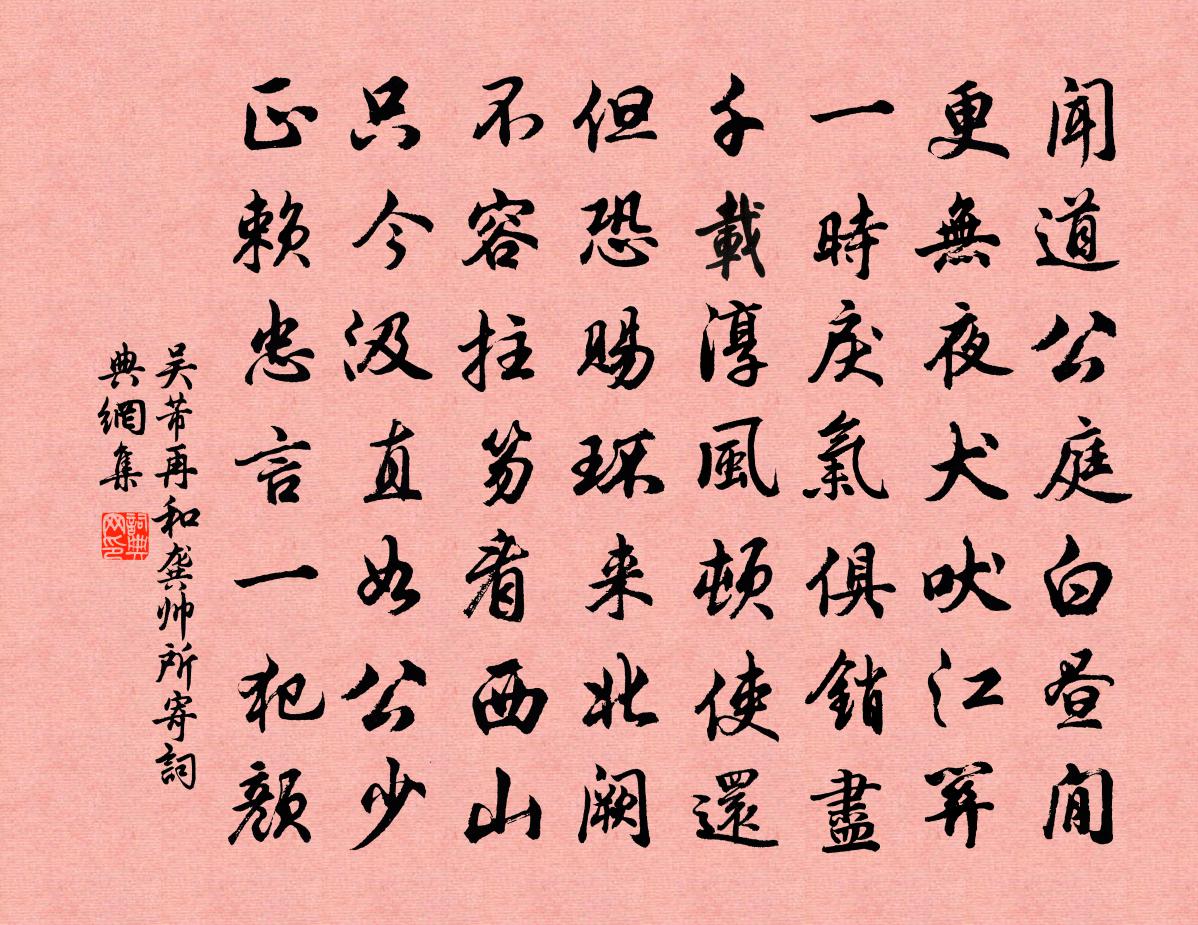 聞道公庭白晝閒
更無夜犬吠江關
一時戾氣俱銷盡
千載淳風頓使還
但恐賜環来北闕
不容拄笏看西山
只今汲直如公少
正賴忠言一犯顏
吴芾再和龚帅所寄詞
典網集
詞典
网印